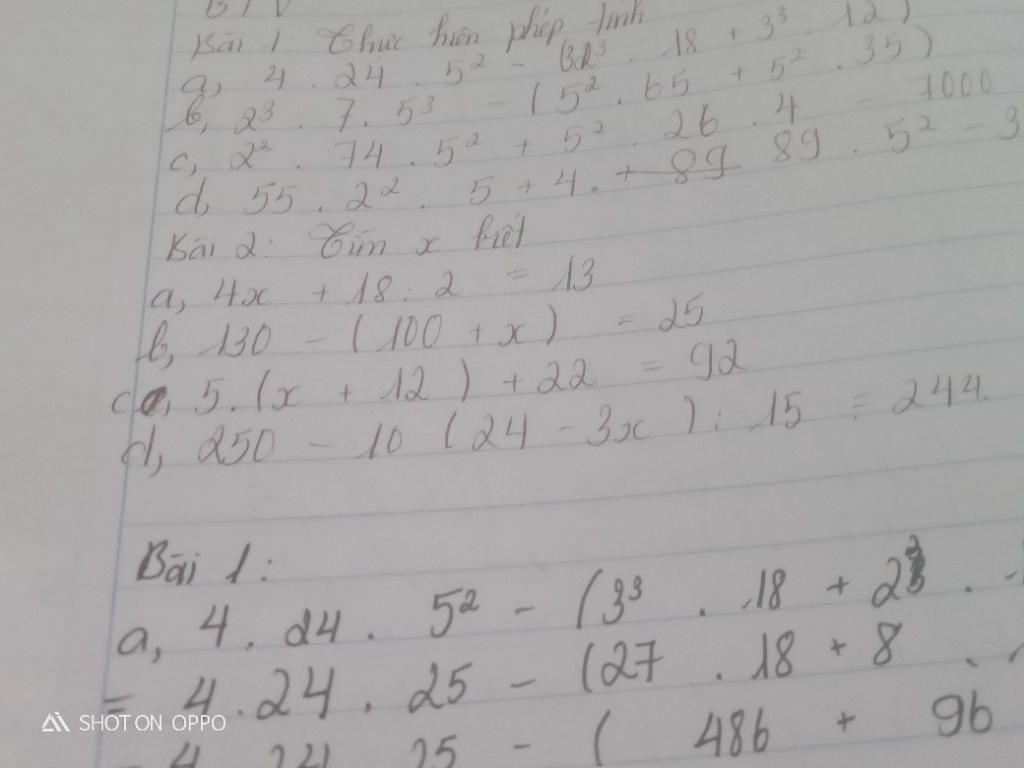 BTV
Bài 1: Thực hiện phép tính
a, 4 . 24 . 5² - (3³ . 18 + 3³ . 12)
b, 2³ . 7 . 5³ - (5² . 65 + 5² . 35)
c, 2² . 74 . 5² + 5² . 26 . 4 - 7000
d, 55 . 2² . 5 + 4 . + 89 89 . 5² - 3
Bài 2: Tìm x biết
a, 4x + 18 : 2 = 13
b, 130 - (100 + x) = 25
c, 5.(x + 12) + 22 = 92
d, 250 - 10 (24 - 3x) : 15 = 244
Bài 1:
a, 4 . 24 . 5² - (3³ . 18 + 2³ .
= 4 . 24 . 25 - (27 . 18 + 8 .
4 24 25 - ( 486 + 96
SHOT ON OPPO